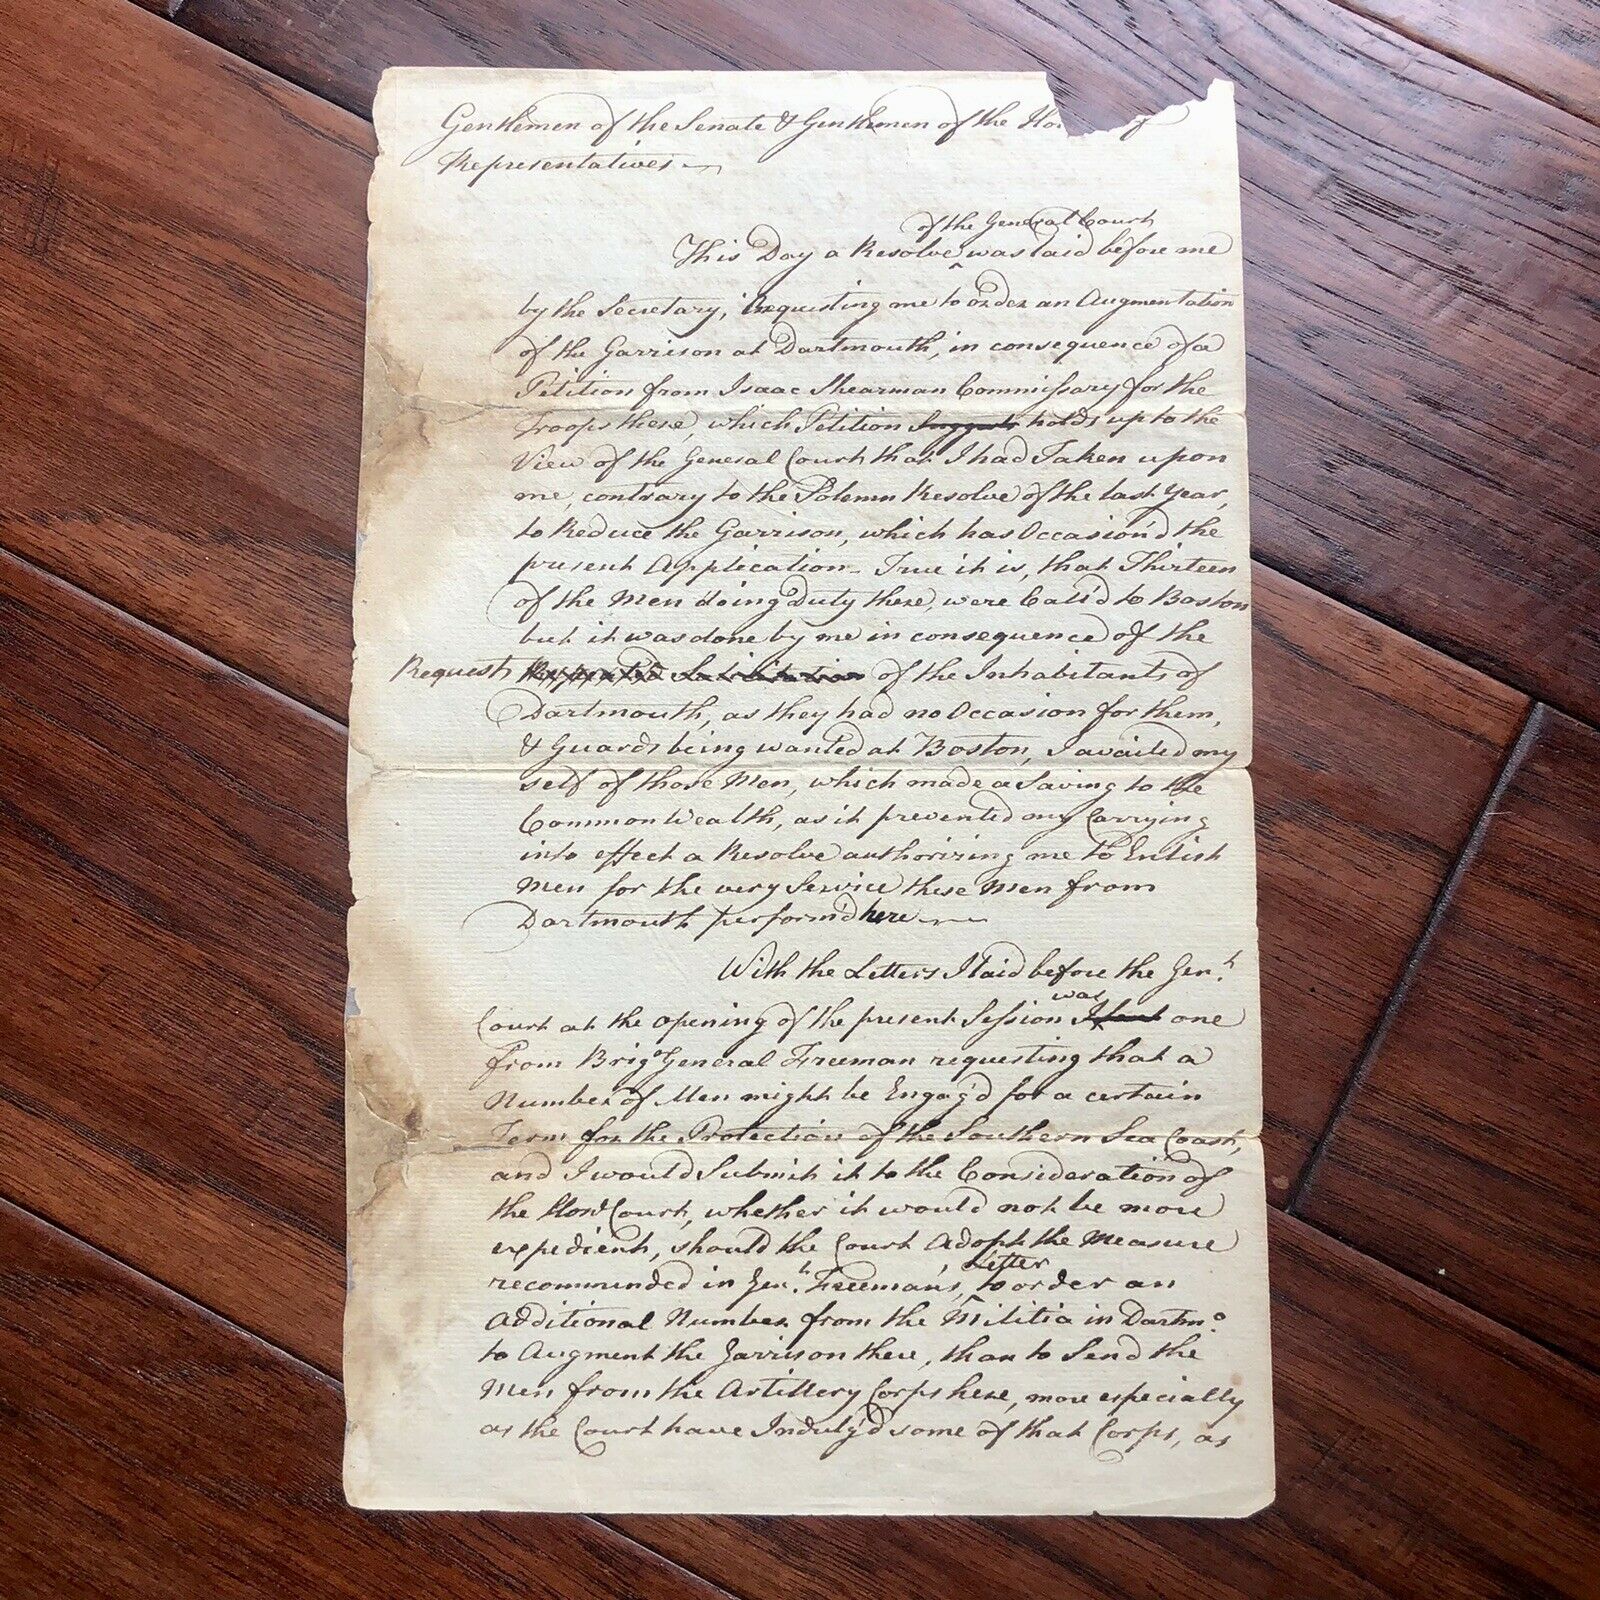 Gentlemen of the Senate & Gentlemen of the Ho of
Representatives
of the General Court
This Day a Resolve ^ was laid before me
by the Secretary, requesting me to order an Augmentation
of the Garrison at Dartmouth, in consequence of a
Petition from Isaac Shearman Commissary for the
Troops there, which Petition Suggests holds up to the
View of the General Court that I had Taken upon
me, contrary to the Solemn Resolve of the last Year,
to Reduce the Garrison, which has Occasion'd the
present Application - True it is, that Thirteen
of the Men doing Duty there, were Call'd to Boston
but it was done by me in consequence of the
Request Repeated Solicitation of the Inhabitants of
Dartmouth, as they had no Occasion for them,
& Guards being wanted at Boston, I availed my
self of those Men, which made a Saving to the
Common Wealth, as it prevented my Carrying
into effect a Resolve authorizing me to Enlist
Men for the very Service these Men from
Dartmouth perform'd here
With the Letters I laid before the Genl.
was
Court at the opening of the present Session I sent one
from Brigr General Freeman requesting that a
Number of Men might be Engag'd for a certain
Term for the Protection of the Southern Sea Coast,
and I would Submit it to the Consideration of
the Hond Court, whether it would not be more
expedient, should the Court Adopt the Measure
Letter
recommended in Genl. Freeman's, ^ to order an
Additional Number from the Militia in Dartmo.
to Augment the Garrison there, than to Send the
Men from the Artillery Corps here, more especially
as the Court have Indulg'd some of that Corps, as